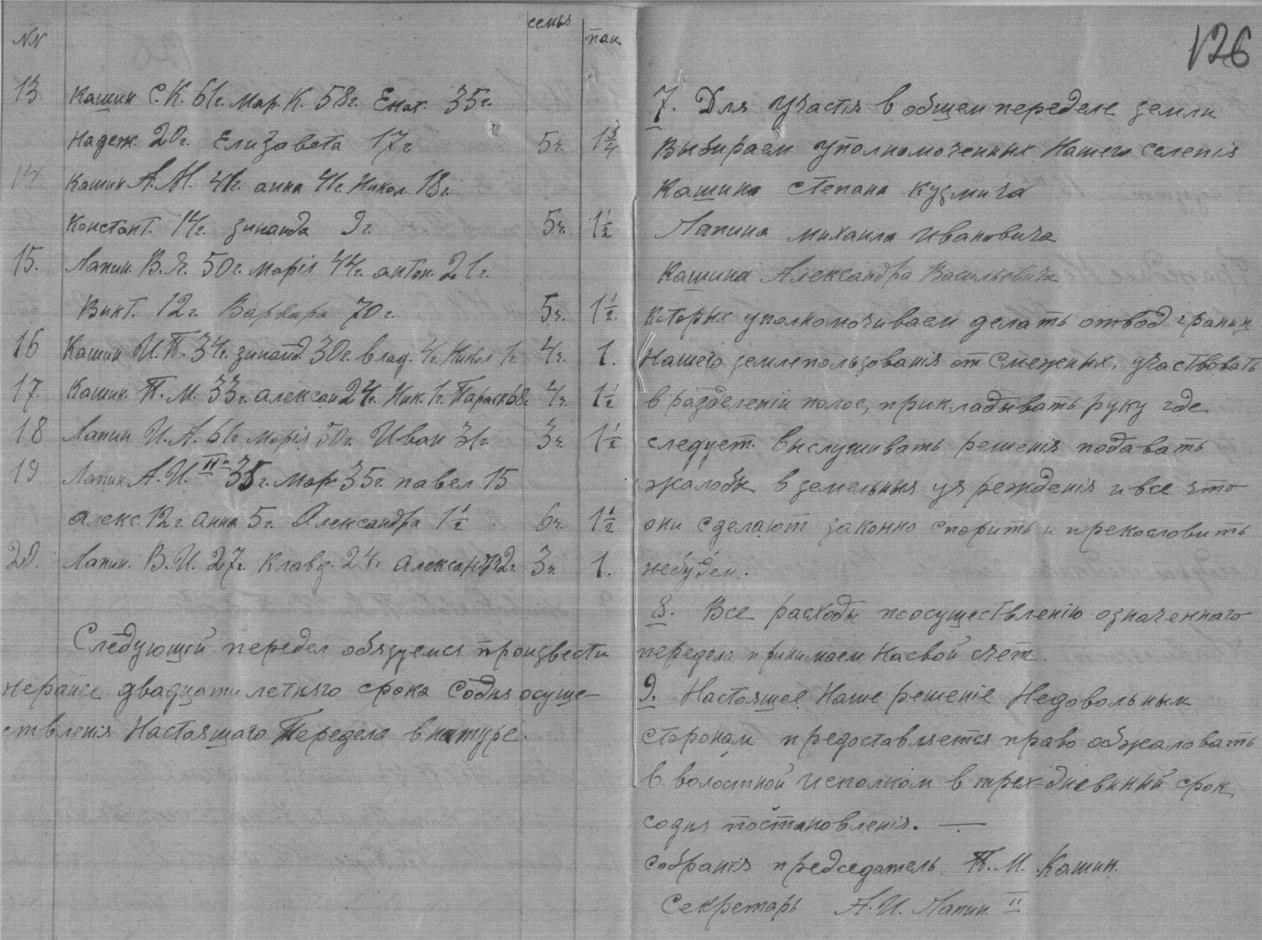 NN семья паи
13. Кашин С.К. 61г. Мар. К. 58г. Екат. 35г.
Надеж. 20г. Елизовета 17г 5ч. 1 3/4
14. Кашин А.М. 48г. анна 41г. Никол. 18г.
Констант. 14г. зинаида 9г. 5ч. 1 1/2
15. Лапин. В.Я. 50г. Марiя 44г. антон. 21г.
Викт. 12г. Варвара 70г. 5ч. 1 1/2.
16 Кашин И.П. 34г. зинаид. 30г. влад. 4г. Никол 1г. 4ч. 1.
17. Кашин. П.М. 33г. алексан 24г. Ник. 1г. Параск 68г. 4ч. 1 1/2
18 Лапин И.А. 61г. Марiя 50г. Иван 31г. 3ч. 1 1/2
19 Лапин А.И. II й 35г. Мар. 35г. павел 15
алекс. 12г. Анна 5г. Александра 1 1/2 6ч. 1 1/2
20. Лапин. В.И. 27г. Клавд. 24г. Александ 2г. 3ч. 1.
Следующей передел обязуемся произвести
неранее двадцатилетняго срока Содня осуще-
ствленiя Настоящаго Передела в натуре.
126
7. Для участiя в общем переделе земли
Выбираем уполномоченных Нашего селенiя
Кашина Степана Кузмича
Лапина Михаила Ивановича
Кашина Александра Васильевича
которых уполномочиваем делать отвод границ
Нашего землепользованiя от Смежных, участвовать
в разделенiи полос, прикладывать руку где
следует. Выслушивать решенiя подавать
жалобы в земельныя учреждения и все что
они сделают законно спорить и прекословить
небудем.
8. Все расходы поосуществленiю означеннаго
передела принимаем Насвой счет.
9. Настоящее Наше решенiе Недовольным
сторонам предоставляется право обжаловать
в волостной исполком в трех-дневный срок
содня постановленiя. —
Собранiя председатель П.М. Кашин.
Секретарь А.И. Лапин II